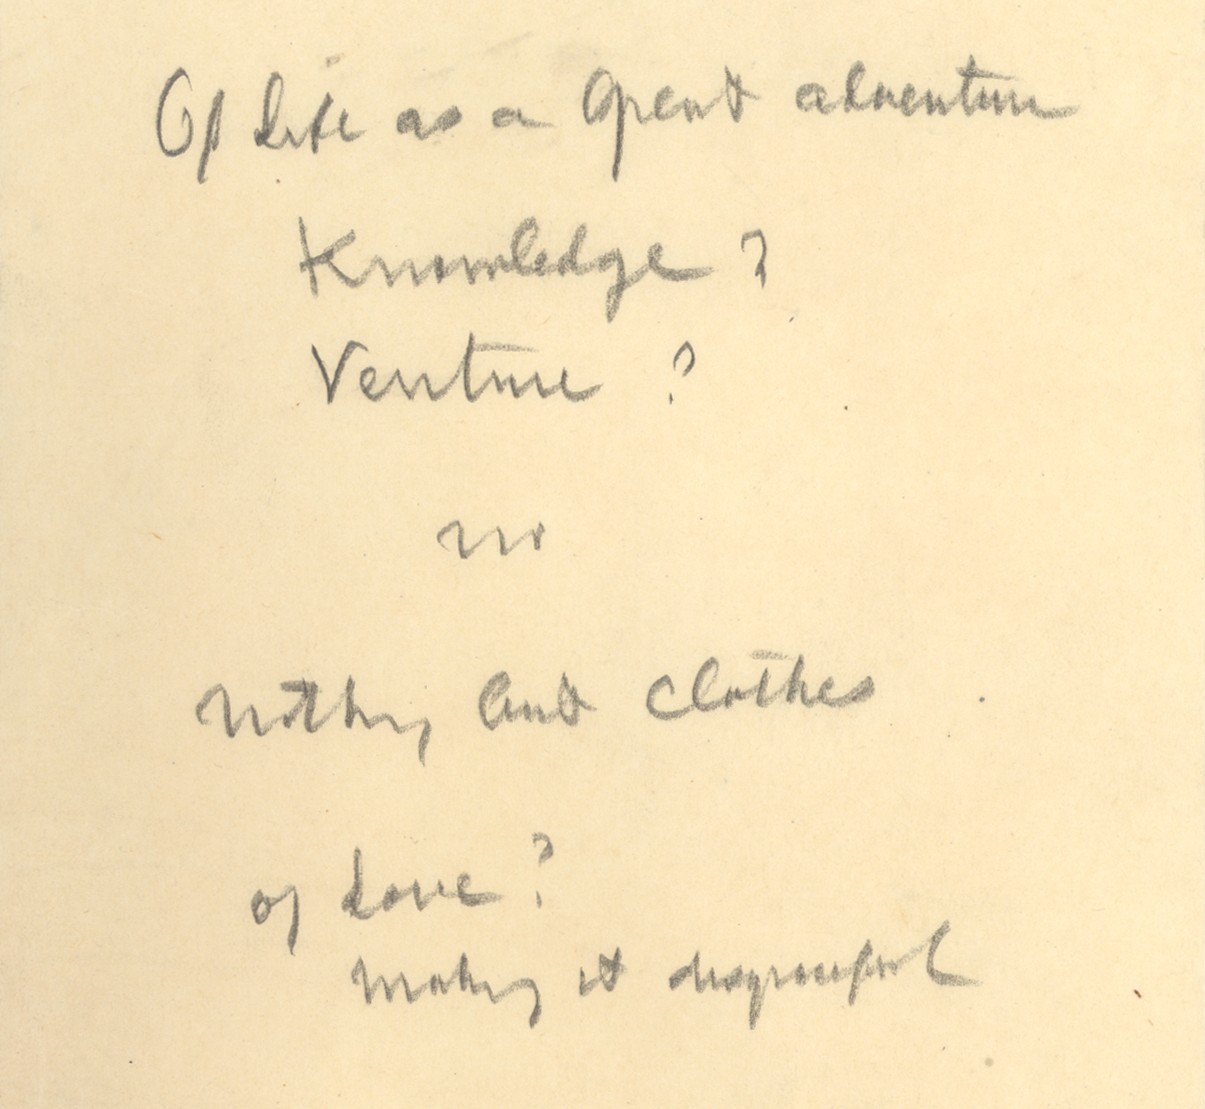 Of Life as a Great adventure
Knowledge ?
Venture ?
no
Nothing but clothes
of Love ?
Making it disgraceful